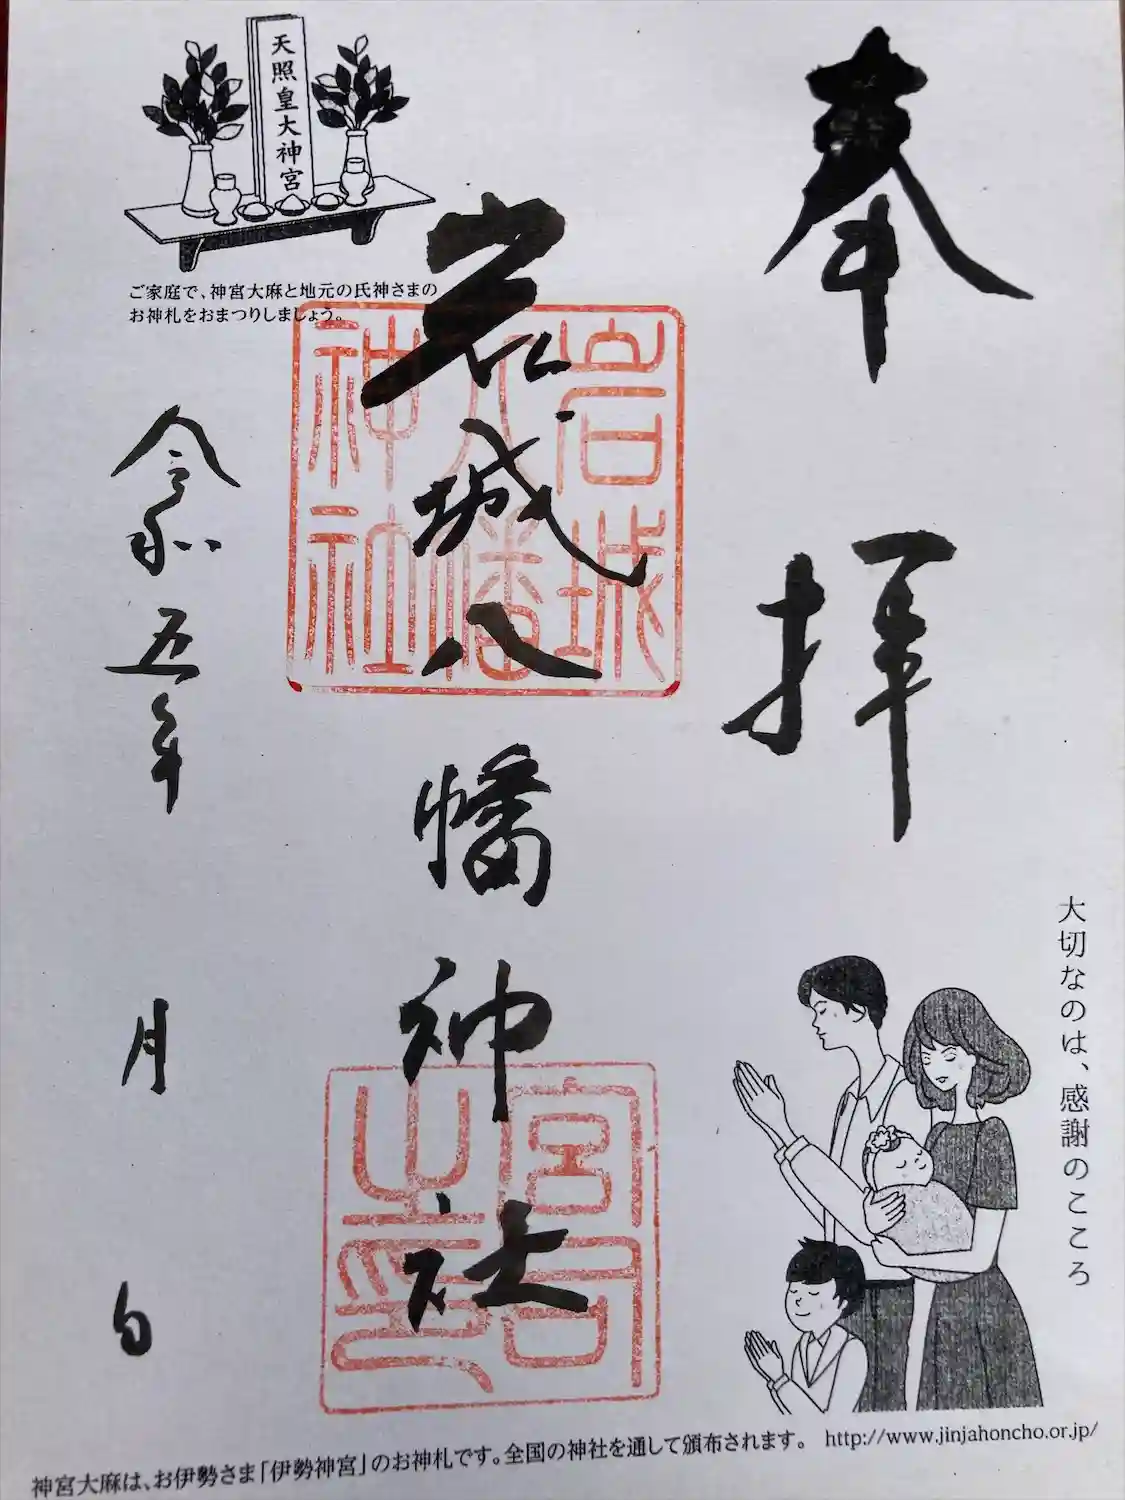 奉拝
大切なのは、感謝のこころ
岩城八幡神社
岩城
八幡
神社
宮司
之印
天照皇大神宮
ご家庭で、神宮大麻と地元の氏神さまの
お神札をおまつりしましょう。
令和五年 月 日
神宮大麻は、お伊勢さま「伊勢神宮」のお神札です。全国の神社を通して頒布されます。 http://www.jinjahoncho.or.jp/